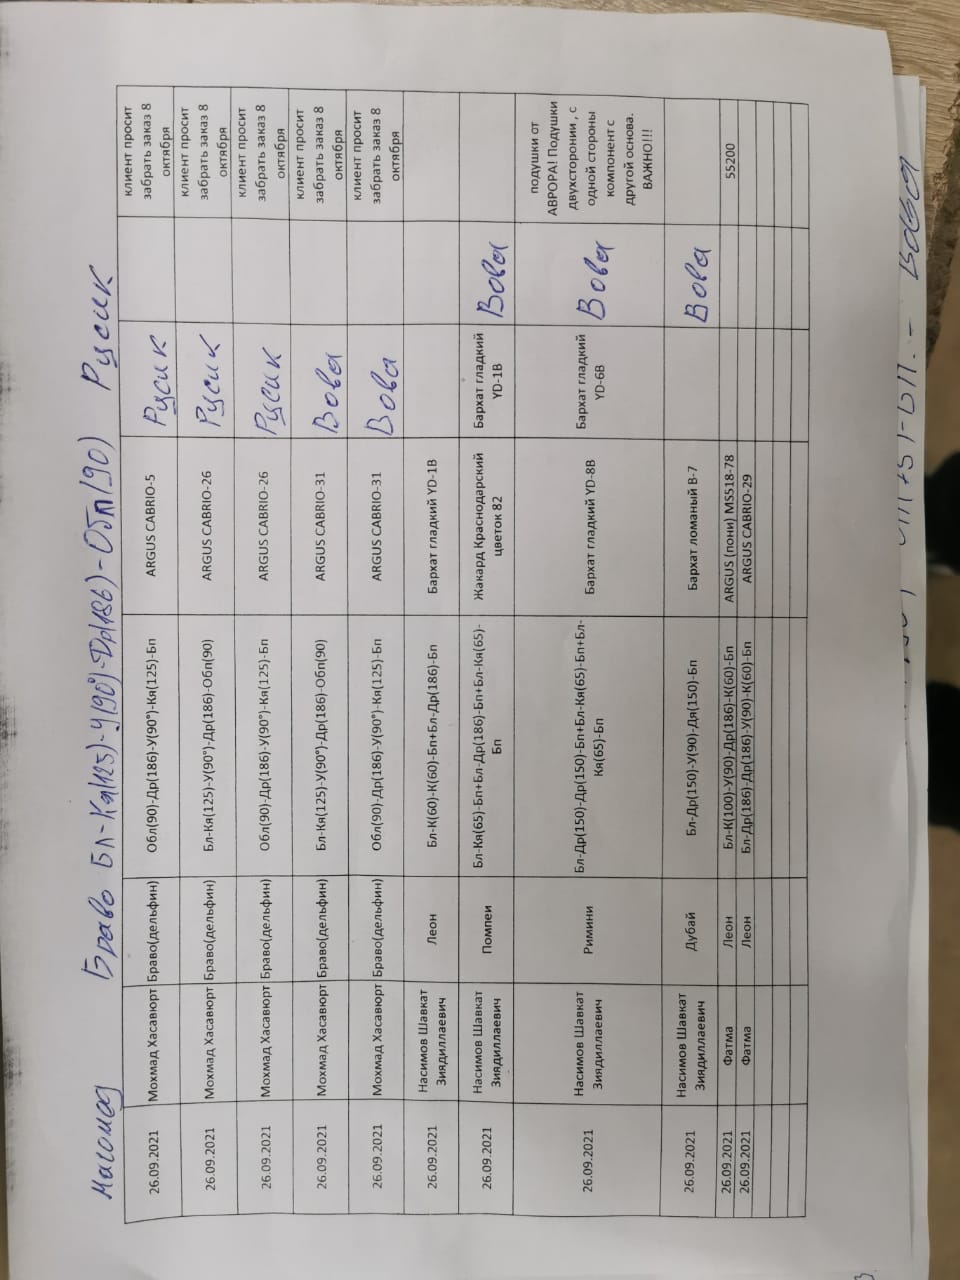 Магомад Браво Бл-Кя(125)-У(90°)-Др(186)-Обп(90) Русик
26.09.2021 Мохмад Хасавюрт Браво(дельфин) Обл(90)-Др(186)-У(90°)-Кя(125)-Бп ARGUS CABRIO-5 Русик клиент просит
забрать заказ 8
октября
26.09.2021 Мохмад Хасавюрт Браво(дельфин) Бл-Кя(125)-У(90°)-Др(186)-Обп(90) ARGUS CABRIO-26 Русик клиент просит
забрать заказ 8
октября
26.09.2021 Мохмад Хасавюрт Браво(дельфин) Обл(90)-Др(186)-У(90°)-Кя(125)-Бп ARGUS CABRIO-26 Русик клиент просит
забрать заказ 8
октября
26.09.2021 Мохмад Хасавюрт Браво(дельфин) Бл-Кя(125)-У(90°)-Др(186)-Обп(90) ARGUS CABRIO-31 Вова клиент просит
забрать заказ 8
октября
26.09.2021 Мохмад Хасавюрт Браво(дельфин) Обл(90)-Др(186)-У(90°)-Кя(125)-Бп ARGUS CABRIO-31 Вова клиент просит
забрать заказ 8
октября
26.09.2021 Насимов Шавкат
Зиядиллаевич Леон Бл-К(60)-К(60)-Бп+Бл-Др(186)-Бп Бархат гладкий YD-1B
26.09.2021 Насимов Шавкат
Зиядиллаевич Помпеи Бл-Кя(65)-Бп+Бл-Др(186)-Бп+Бл-Кя(65)-
Бп Жакард Краснодарский
цветок 82 Бархат гладкий
YD-1B Вова
26.09.2021 Насимов Шавкат
Зиядиллаевич Римини Бл-Др(150)-Др(150)-Бп+Бл-Кя(65)-Бп+Бл-
Кя(65)-Бп Бархат гладкий YD-8B Бархат гладкий
YD-6B Вова подушки от
АВРОРА! Подушки
двухсторонии , с
одной стороны
компонент с
другой основа.
ВАЖНО!!!
26.09.2021 Насимов Шавкат
Зиядиллаевич Дубай Бл-Др(150)-У(90)-Дя(150)-Бп Бархат ломаный В-7 Вова
26.09.2021 Фатма Леон Бл-К(100)-У(90)-Др(186)-К(60)-Бп ARGUS (пони) MS518-78 55200
26.09.2021 Фатма Леон Бл-Др(186)-Др(186)-У(90)-К(60)-Бп ARGUS CABRIO-29